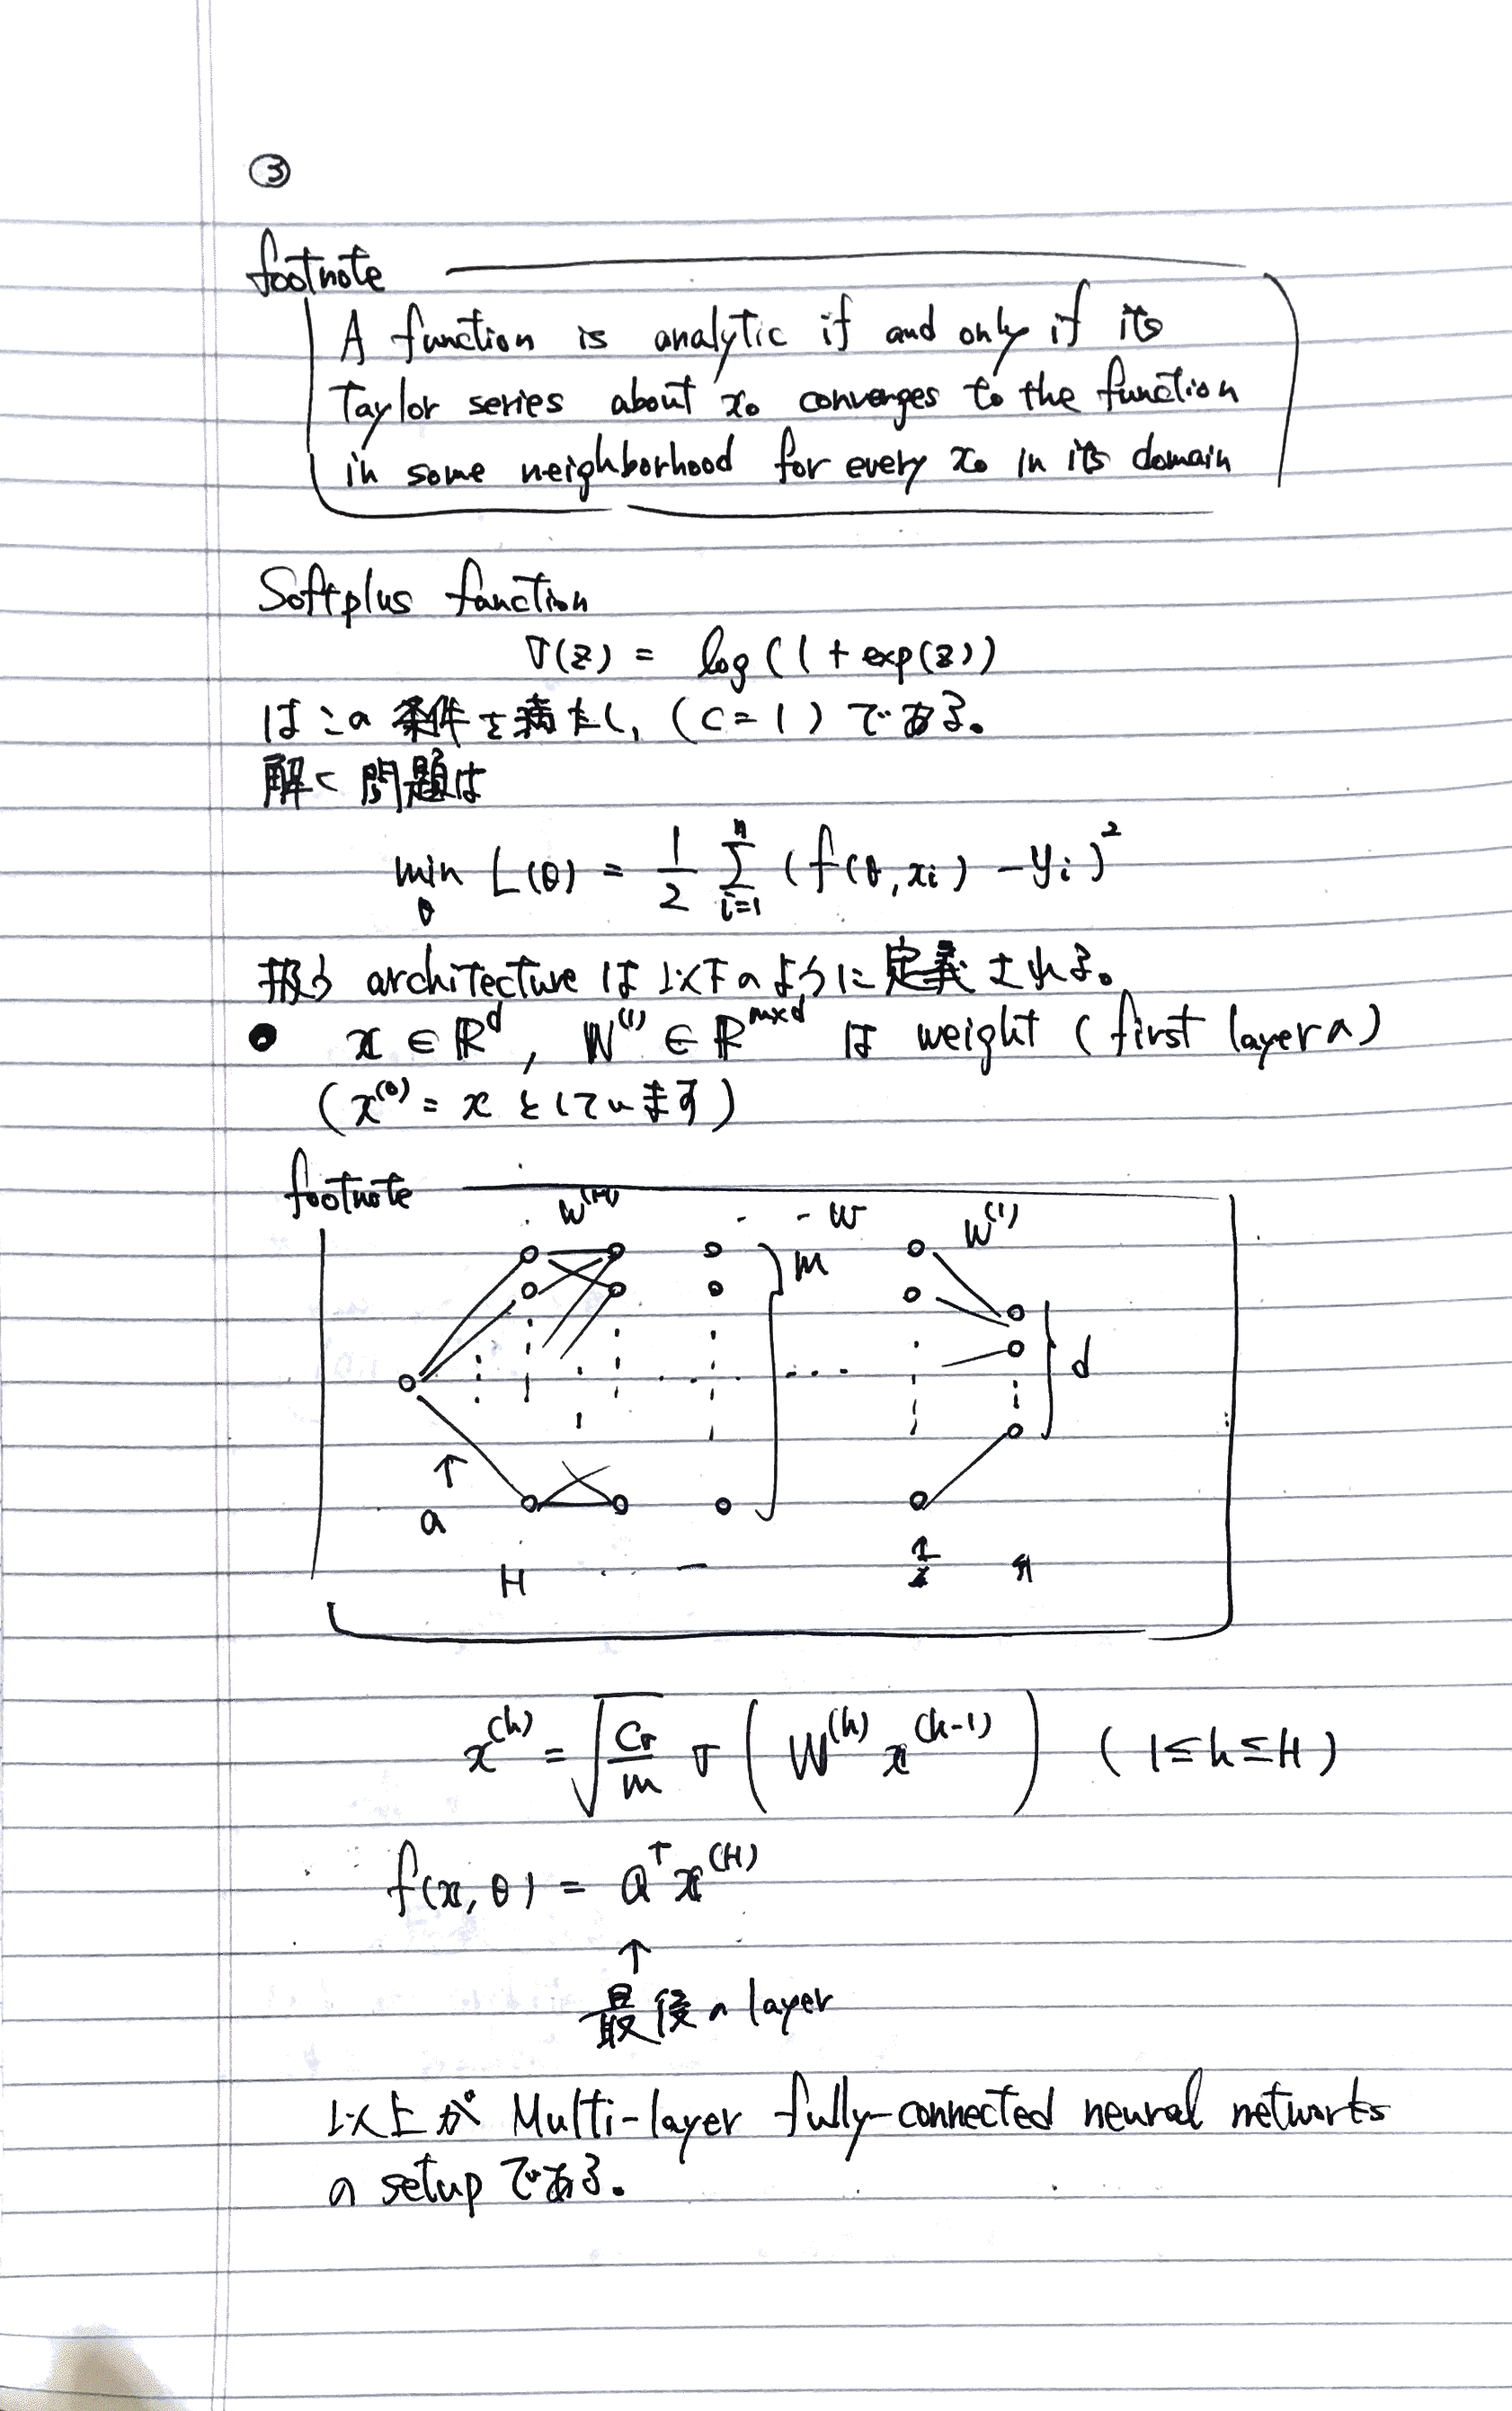 ③
footnote
A function is analytic if and only if its
Taylor series about x₀ converges to the function
in some neighborhood for every x₀ in its domain
Softplus function
σ(z) = log(1 + exp(z))
はこの条件を満たし, (c=1) である。
解く問題は
min_θ L(θ) = 1/2 Σ_{i=1}^{n} (f(θ, xᵢ) - yᵢ)²
扱う architecture は以下のように定義される。
● x ∈ ℝ^d, W^(1) ∈ ℝ^{m×d} は weight (first layerの)
(x^(0) = x としています)
footnote
W^(H) - - W W^(1)
m
d
a
H - 1
x^(h) = √(c_σ/m) σ(W^(h) x^(h-1)) (1≤h≤H)
f(x, θ) = a^⊤ x^(H)
↑
最後の layer
以上が Multi-layer fully-connected neural networks
の setup である。